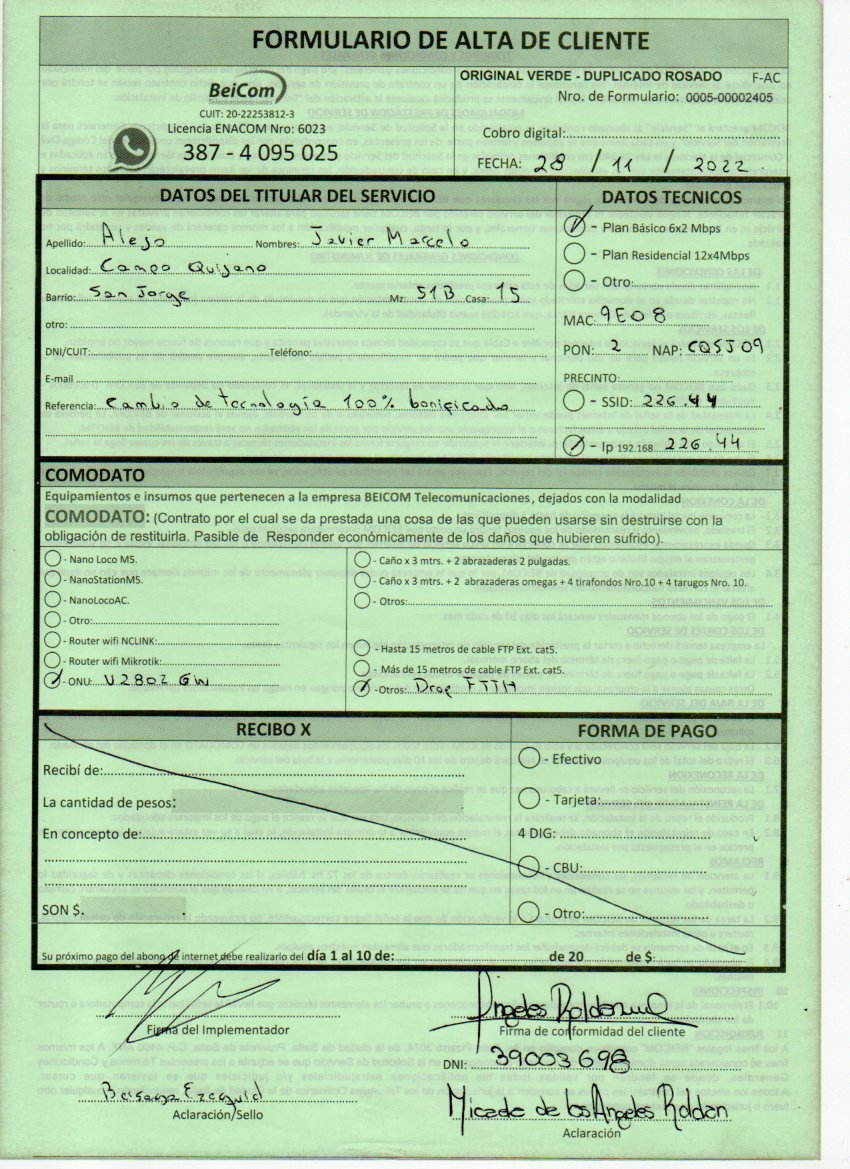 FORMULARIO DE ALTA DE CLIENTE
BeiCom
Telecomunicaciones
CUIT: 20-22253812-3
Licencia ENACOM Nro: 6023
387 - 4 095 025
ORIGINAL VERDE - DUPLICADO ROSADO F-AC
Nro. de Formulario: 0005-00002405
Cobro digital:
FECHA: 28 / 11 / 2022
DATOS DEL TITULAR DEL SERVICIO
Apellido: Alejo Nombres: Javier Marcelo
Localidad: Campo Quijano
Barrio: San Jorge Mz: 51B Casa: 15
otro:
DNI/CUIT: Teléfono:
E-mail
Referencia: Cambio de tecnología 100% bonificado
DATOS TECNICOS
- Plan Básico 6x2 Mbps
- Plan Residencial 12x4Mbps
- Otro:
MAC: 9E08
PON: 2 NAP: CQSJ09
PRECINTO:
- SSID: 226.44
- Ip 192.168. 226.44
COMODATO
Equipamientos e insumos que pertenecen a la empresa BEICOM Telecomunicaciones, dejados con la modalidad
COMODATO: (Contrato por el cual se da prestada una cosa de las que pueden usarse sin destruirse con la
obligación de restituirla. Pasible de Responder económicamente de los daños que hubieren sufrido).
- Nano Loco M5.
- NanoStationM5.
- NanoLocoAC.
- Otro:
- Router wifi NCLINK:
- Router wifi Mikrotik:
- ONU: V2802 GW
- Caño x 3 mtrs. + 2 abrazaderas 2 pulgadas.
- Caño x 3 mtrs. + 2 abrazaderas omegas + 4 tirafondos Nro.10 + 4 tarugos Nro. 10.
- Otros:
- Hasta 15 metros de cable FTP Ext. cat5.
- Más de 15 metros de cable FTP Ext. cat5.
-Otros: Drop FTTH
RECIBO X
Recibí de:
La cantidad de pesos:
En concepto de:
SON $.
FORMA DE PAGO
- Efectivo
- Tarjeta:
4 DIG:
- CBU:
- Otro:
Su próximo pago del abono de internet debe realizarlo del día 1 al 10 de: de 20 de $:
Firma del Implementador
Ezequiel
Aclaración/Sello
Angeles Roldan
Firma de conformidad del cliente
DNI: 39003698
Micaela de los Angeles Roldan
Aclaración